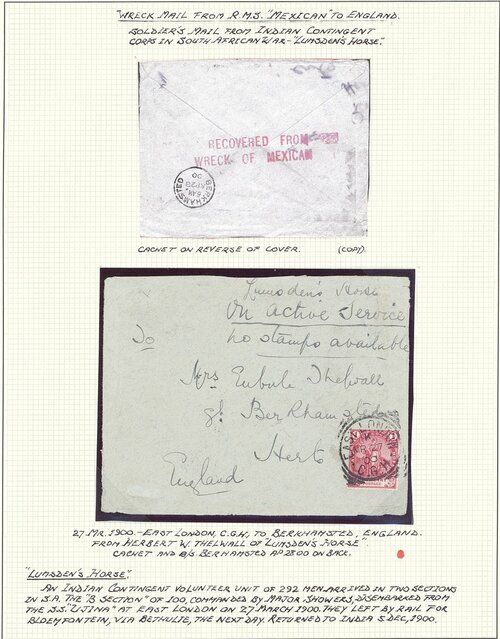 "WRECK MAIL FROM R.M.S. "MEXICAN" TO ENGLAND.
SOLDIER'S MAIL FROM INDIAN CONTINGENT
CORPS IN SOUTH AFRICAN WAR - "LUMSDEN'S HORSE".
RECOVERED FROM
WRECK OF MEXICAN
BERKHAMSTED
8 AM
AP 28
00
CACHET ON REVERSE OF COVER. (COPY).
Lumsden's Horse
On Active Service
To no stamps available
Mrs Eubule Thelwall
gt. Berkhamsted
Herts
England
EAST LONDON
C.G.H.
27 MR. 1900. - EAST LONDON, C.G.H, TO BERKHAMSTED, ENGLAND.
FROM HERBERT W. THELWALL OF "LUMSDEN'S HORSE".
CACHET AND B/S. BERHAMSTED AP 28 00 ON BACK.
"LUMSDEN'S HORSE".
AN INDIAN CONTINGENT VOLUNTEER UNIT OF 292 MEN ARRIVED IN TWO SECTIONS
IN S.A. THE "B SECTION" OF 100, COMMANDED BY MAJOR SHOWERS, DISEMBARKED FROM
THE S.S. "UJINA" AT EAST LONDON ON 27 MARCH 1900. THEY LEFT BY RAIL FOR
BLOEMFONTEIN, VIA BETHULIE, THE NEXT DAY. RETURNED TO INDIA 5 DEC, 1900.